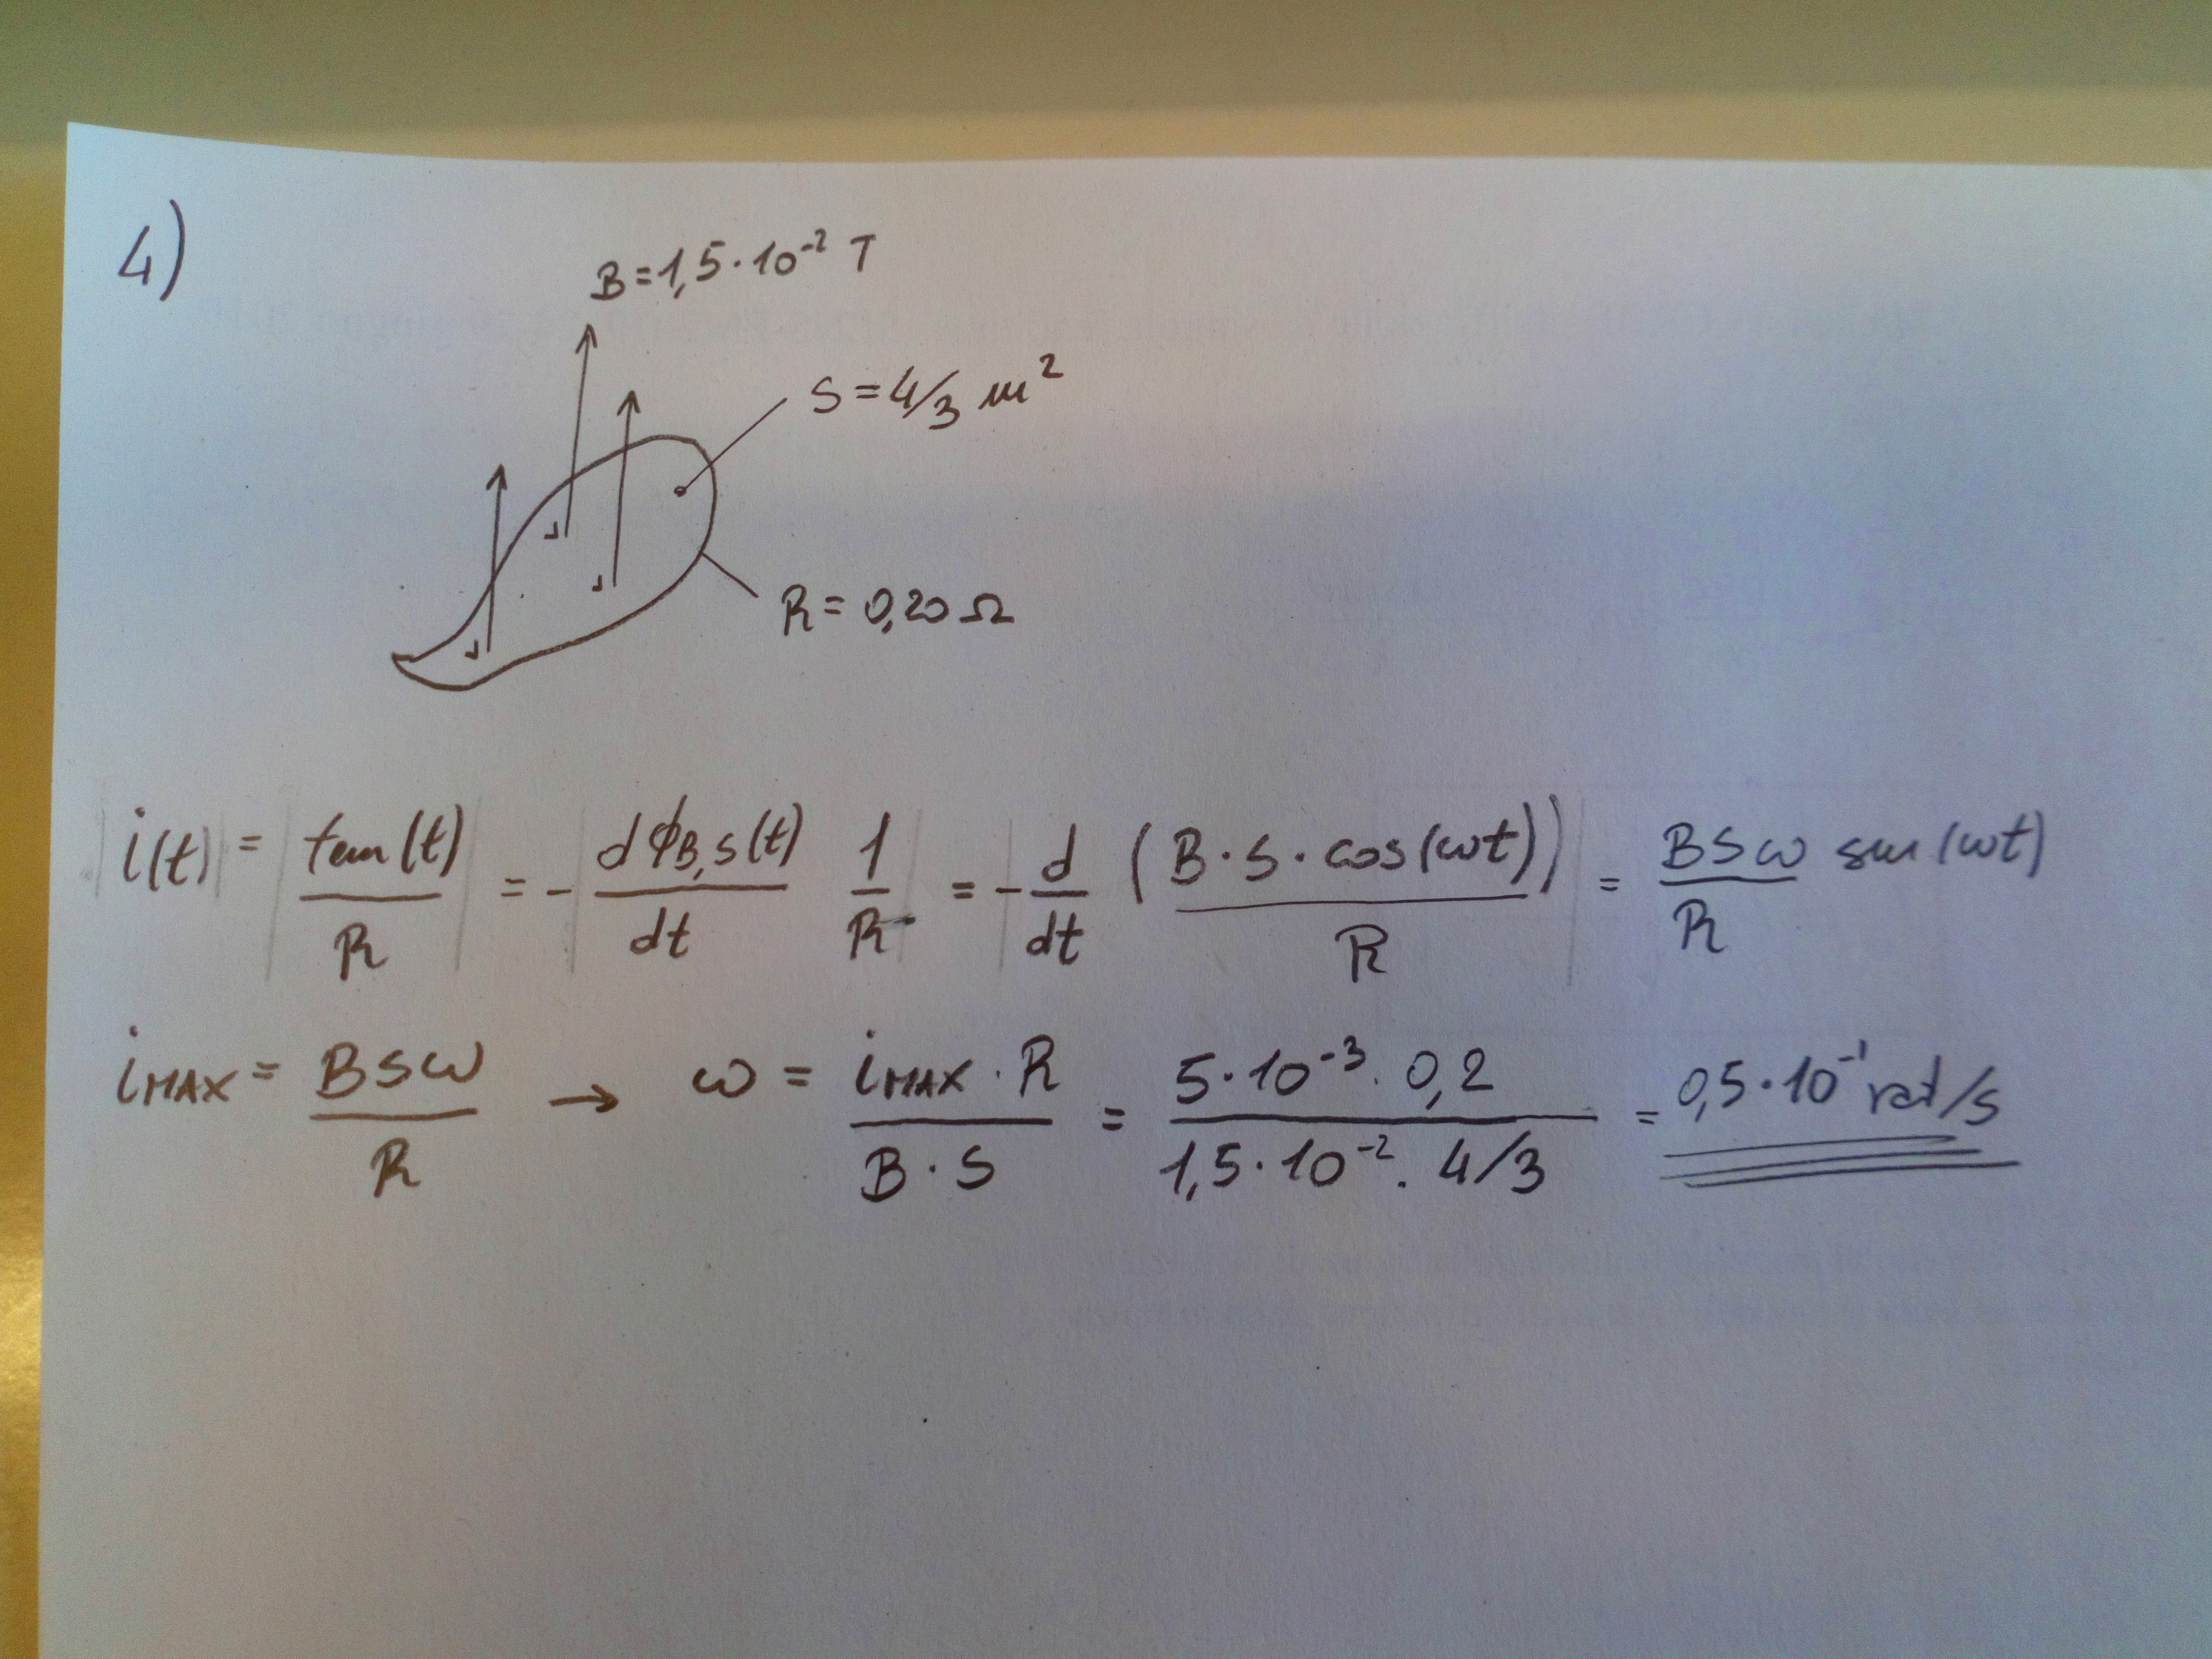 4)
B=1,5·10⁻² T
S=4/3 m²
R=0,20 Ω
|i(t)| = |fem(t)/R| = -|dϕB,S(t)/dt 1/R| = -|d/dt (B·S·cos(ωt)/R)| = BSω/R sin(ωt)
iMAX = BSω/R → ω = iMAX·R/B·S = 5·10⁻³·0,2/1,5·10⁻²·4/3 = 0,5·10⁻¹ rad/s